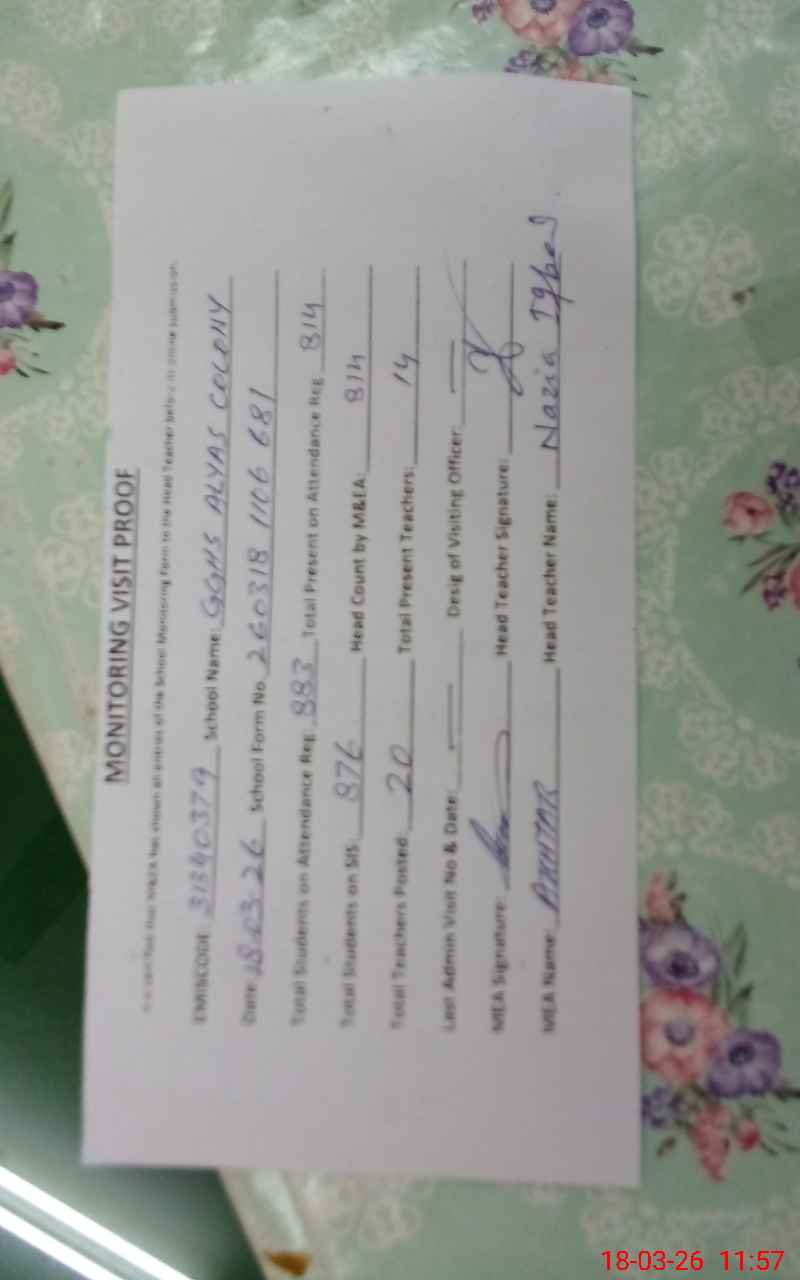 MONITORING VISIT PROOF
It is certified that MAEA has shown all entries of the School Monitoring Form to the Head Teacher before its online submission.
EMISCODE: 31340379 School Name: GGHS ALYAS COLONY
Date: 18-03-26 School Form No. 260318 1106 681
Total Students on Attendance Reg: 883 Total Present on Attendance Reg 814
Total Students on SIS: 876 Head Count by M&EA: 814
Total Teachers Posted: 20 Total Present Teachers: 14
Last Admin Visit No & Date: — Desig of Visiting Officer: —
MEA Signature: Head Teacher Signature:
MEA Name: AKHTAR Head Teacher Name: Nazia Iqbal.
18-03-26 11:57